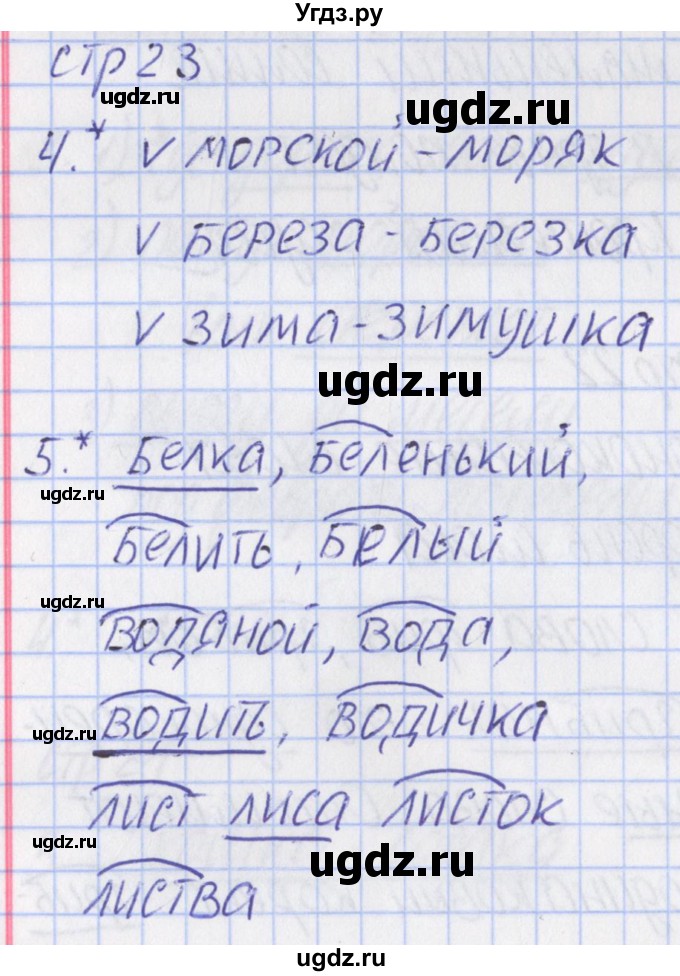 Угдз.ру
стр 23
ugdz.ru ugdz.ru
4.* v морской - моряк
ugdz.ru
v береза - березка
v зима - зимушка
ugdz.ru
5.* Белка, беленький,
ugdz.ru
белить, белый
ugdz.ru ugdz.ru
водяной, вода,
ugdz.ru
водить, водичка
лист лиса листок
ugdz.ru ugdz.ru
листва
ugdz.ru